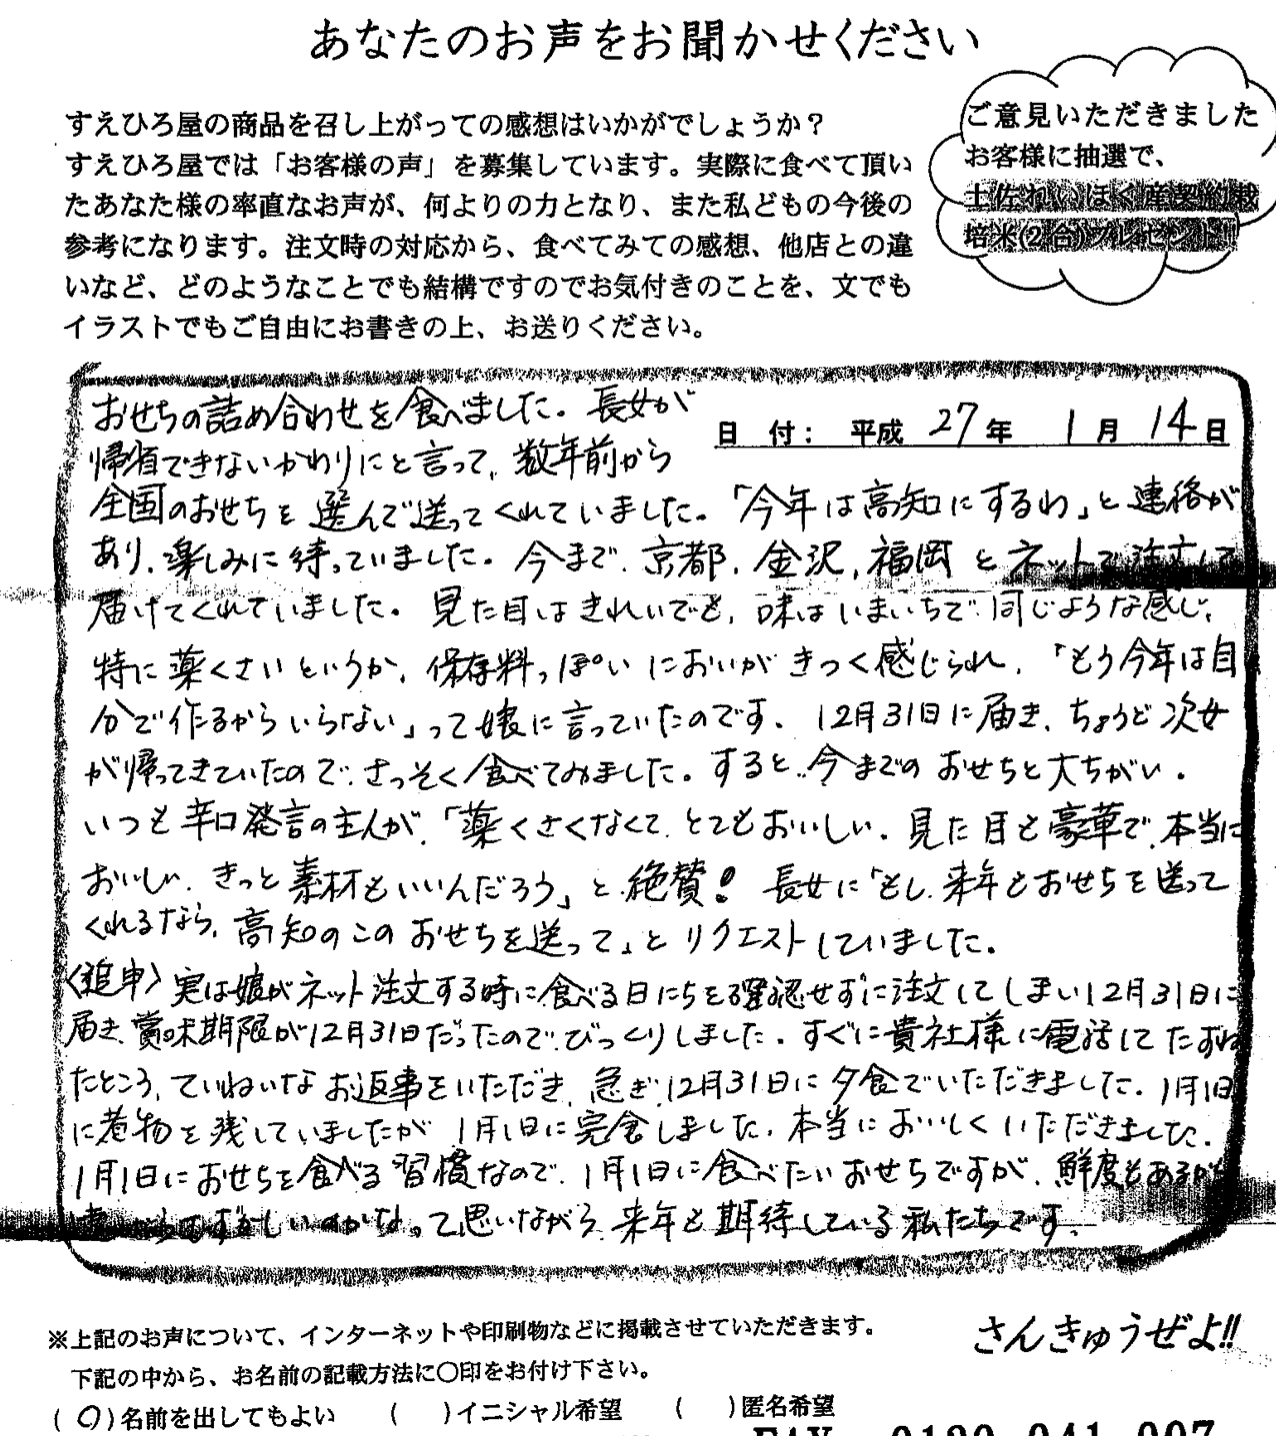 あなたのお声をお聞かせください
すえひろ屋の商品を召し上がっての感想はいかがでしょうか？
すえひろ屋では「お客様の声」を募集しています。実際に食べて頂い
たあなた様の率直なお声が、何よりの力となり、また私どもの今後の
参考になります。注文時の対応から、食べてみての感想、他店との違
いなど、どのようなことでも結構ですのでお気付きのことを、文でも
イラストでもご自由にお書きの上、お送りください。
ご意見いただきました
お客様に抽選で、
土佐れいほく産契約栽
培米(2合)プレゼント!
日 付： 平成 27年 1月 14日
おせちの詰め合わせを食べました。長女が
帰省できないかわりにと言って、数年前から
全国のおせちを選んで送ってくれていました。「今年は高知にするわ」と連絡が
あり、楽しみに待っていました。今まで、京都、金沢、福岡とネットで注文して
届けてくれていました。見た目はきれいでも、味はいまいちで、同じような感じ、
特に薬くさいというか、保存料っぽいにおいがきつく感じられ、「もう今年は自
分で作るからいらない」って娘に言っていたのです。12月31日に届き、ちょうど次女
が帰ってきていたので、さっそく食べてみました。すると、今までのおせちと大ちがい。
いつも辛口発言の主人が、「薬くさくなくて、とてもおいしい。見た目も豪華で、本当に
おいしい。きっと素材もいいんだろう」と絶賛！長女に「もし、来年もおせちを送って
くれるなら、高知のこのおせちを送って」とリクエストしていました。
〈追申〉実は娘がネット注文する時に食べる日にちを確認せずに注文してしまい12月31日に
届き、賞味期限が12月31日だったので、びっくりしました。すぐに貴社様に電話してたずね
たところ、ていねいなお返事をいただき、急ぎ、12月31日に夕食でいただきました。1月1日
に煮物を残していましたが1月1日に完食しました。本当においしくいただきました。
1月1日におせちを食べる習慣なので、1月1日に食べたいおせちですが、鮮度もあるから
むずかしいのかなって思いながら、来年も期待している私たちです。
※上記のお声について、インターネットや印刷物などに掲載させていただきます。
下記の中から、お名前の記載方法に〇印をお付け下さい。
さんきゅうぜよ!!
( 〇 )名前を出してもよい ( )イニシャル希望 ( )匿名希望
FAX 0120-941-007